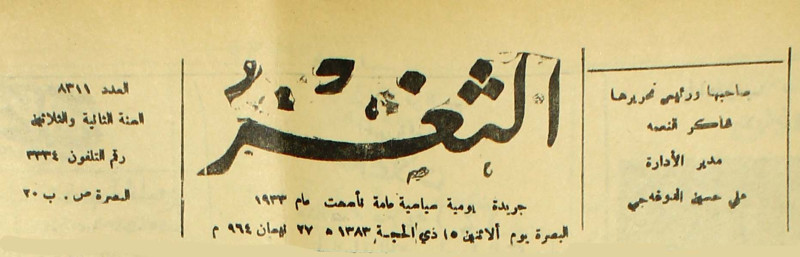 صاحبها ورئيس تحريرها
شاكر النعمه
مدير الأدارة
علي حسين
الثغر
جريدة يومية سياسية عامة تأسست عام ١٩٣٣
البصرة يوم ألاثنين ١٥ ذي الحجة ١٣٨٣ ه ٢٧ نيسان ٩٦٤ م
العدد ٨٣١١
السنة الثانية والثلاثين
رقم التلفون ٣٣٣٤
البصرة ص . ب ٢٠